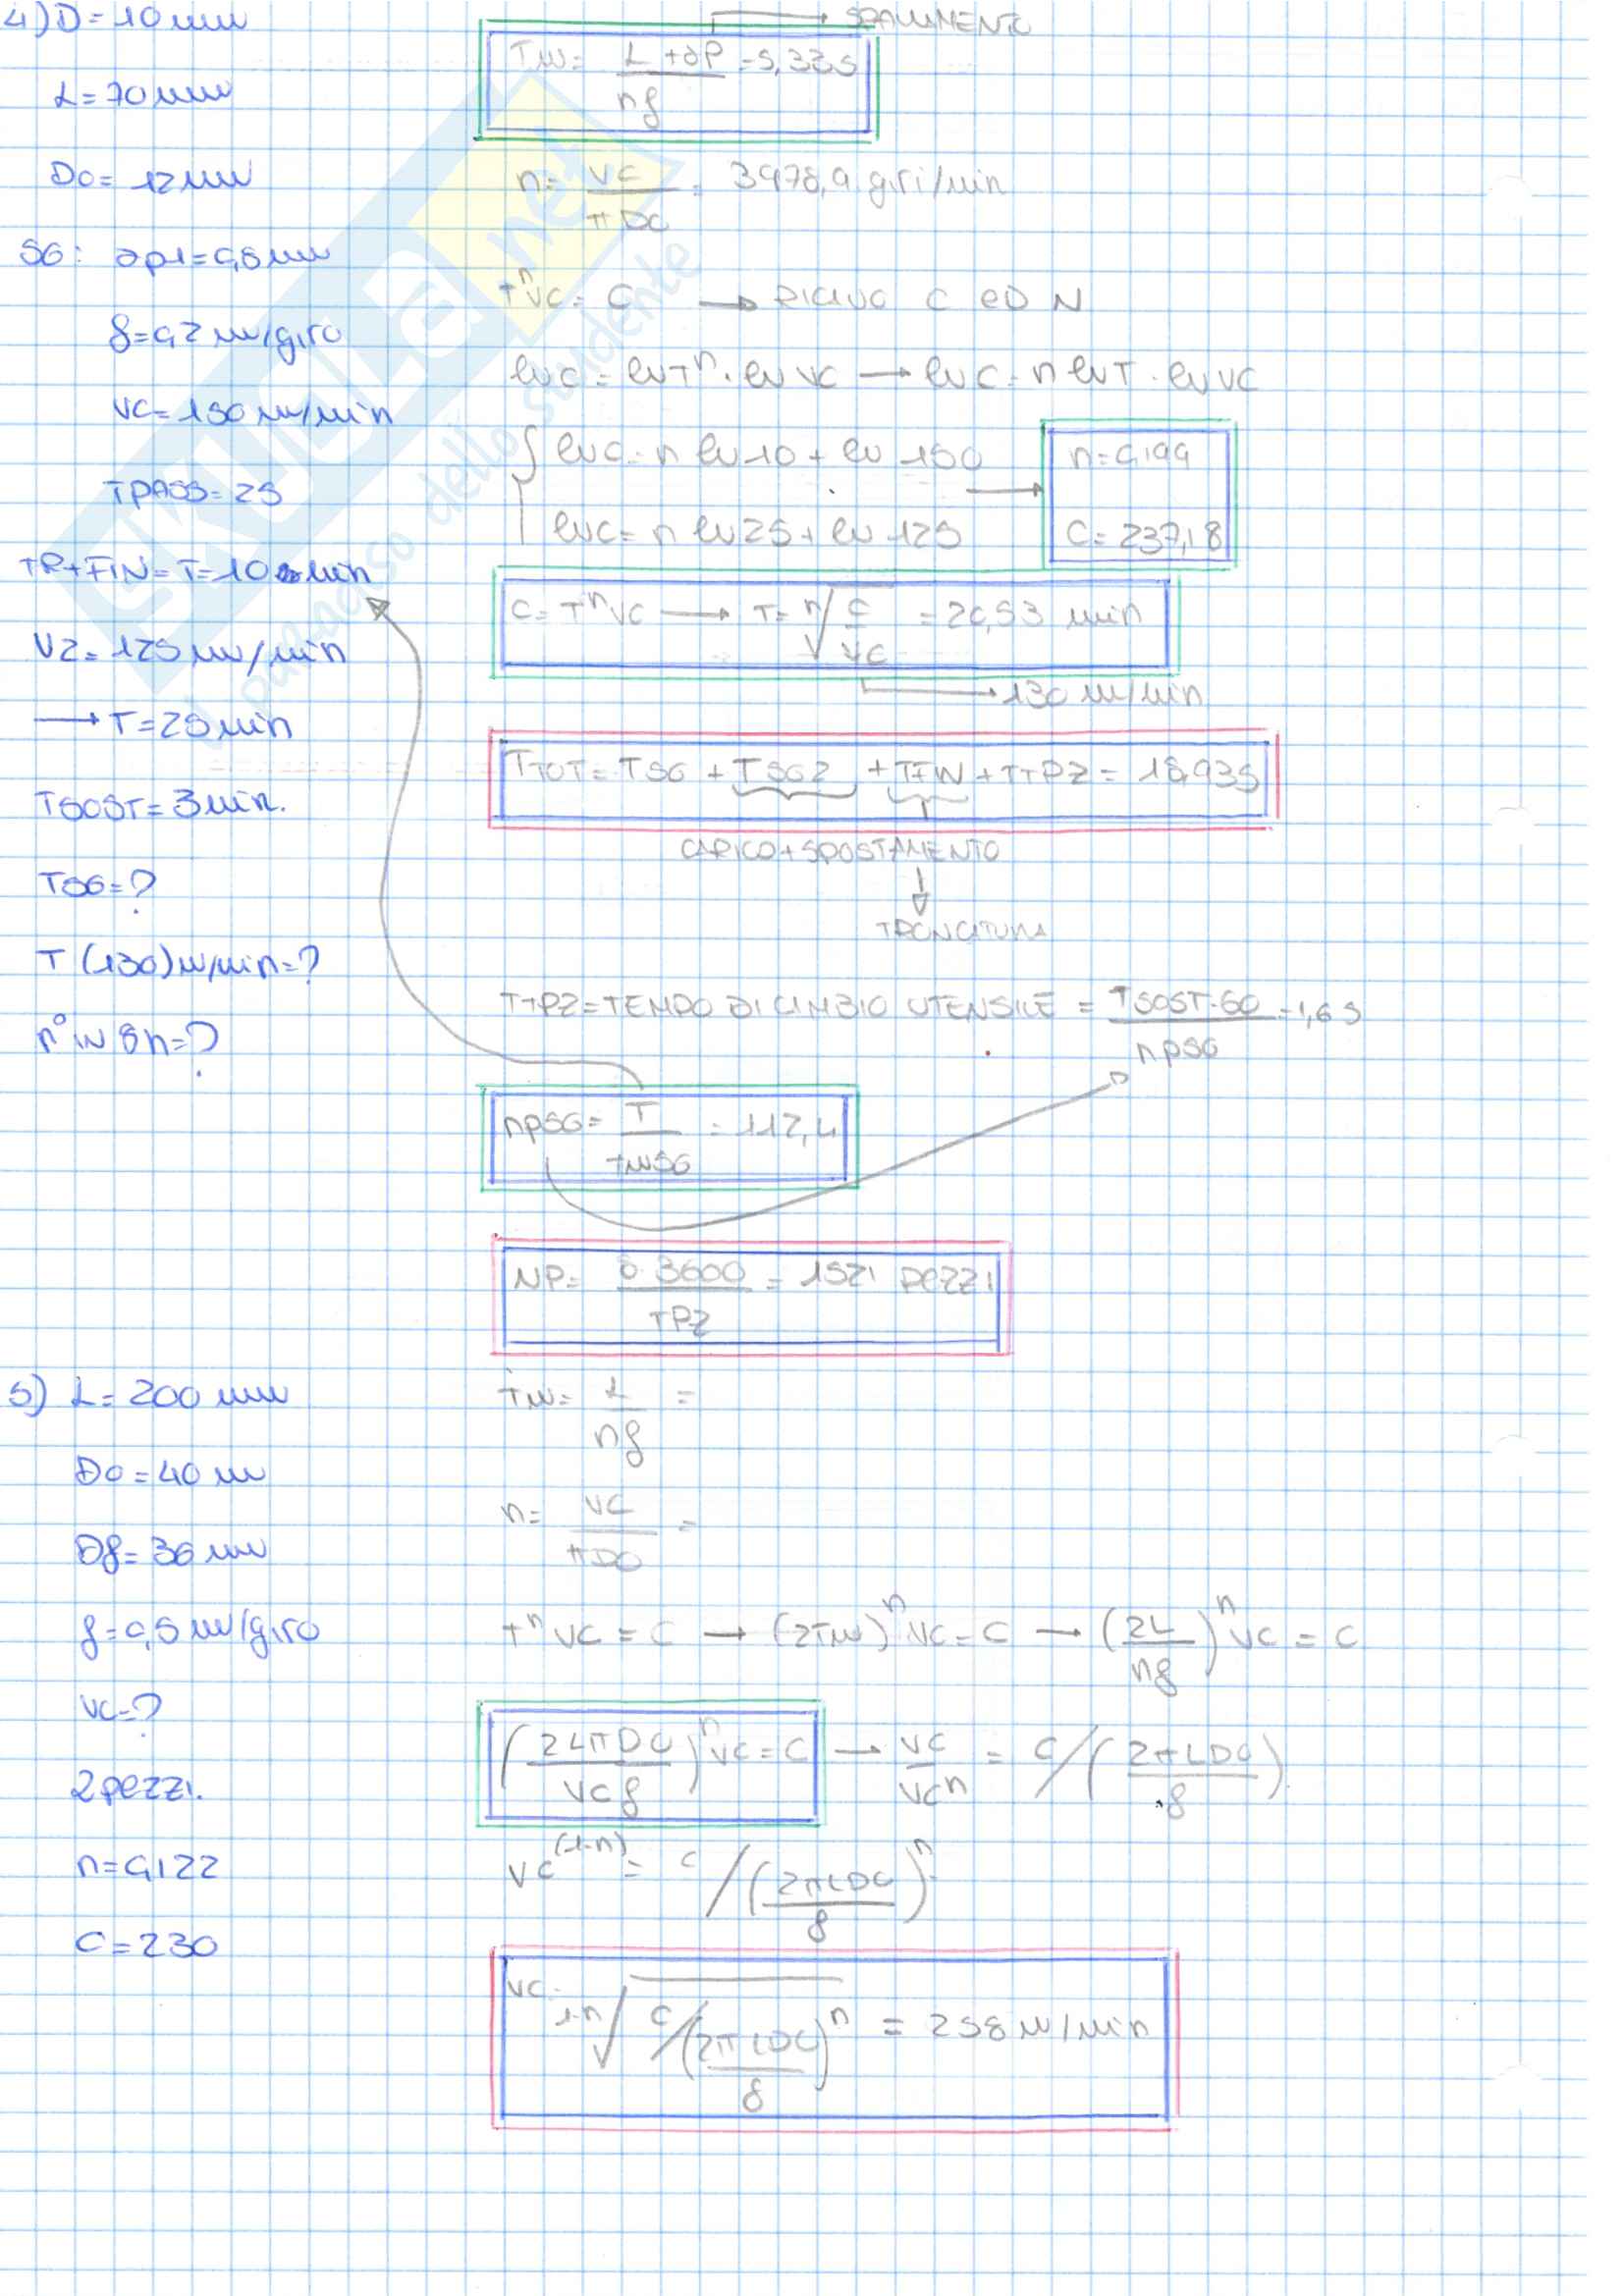 4) D = 10 mm
L = 70 mm
D0 = 12 mm
SG: ap1 = 0,8 mm
f = 0,2 mm/giro
VC = 150 m/min
TPASS = 2S
TR+FIN = T = 10 min
V2 = 125 m/min
→ T = 25 min
TSOST = 3 min.
TSG = ?
T (130) m/min = ?
n° IN 8h = ?
TW = L + ap / nf = 5,33S
n = VC / πD0 = 3978,9 giri/min
T^n VC = C → RICAVO C ED N
ln C = ln T^n · ln VC → ln C = n ln T · ln VC
ln C = n ln 10 + ln 150
ln C = n ln 25 + ln 125
n = 0,199
C = 237,18
C = T^n VC → T = n√ C / VC = 20,53 min
→ 130 m/min
TTOT = TSG + TSG2 + TFIN + TTPZ = 18,93S
CARICO + SPOSTAMENTO
TRONCATURA
TTPZ = TEMPO DI CAMBIO UTENSILE = TSOST·60 / npSG = 1,6 S
npSG = T / TWSG = 112,4
NP = 8·3600 / TPZ = 1521 PEZZI
5) L = 200 mm
D0 = 40 mm
Df = 36 mm
f = 0,5 mm/giro
VC = ?
2 PEZZI.
n = 0,122
C = 230
TW = L / nf =
n = VC / πD0 =
T^n VC = C → (2TW)^n VC = C → (2L / nf)^n VC = C
(2LπD0 / VC f)^n VC = C → VC / VC^n = C / (2πLD0 / f)
VC^(1-n) = C / (2πLD0 / f)^n
VC = 1-n√ C / (2πLD0 / f)^n = 258 m/min
SKUOLA.net
il paradiso dello studente